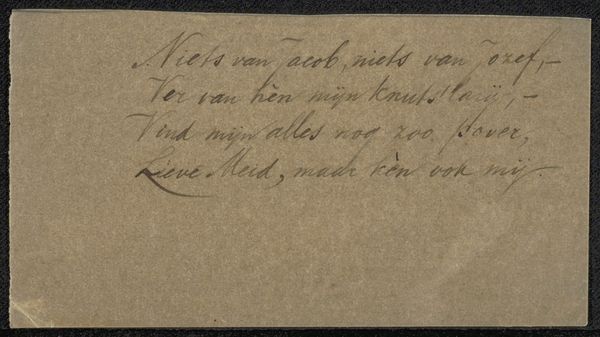 Niets van Jacob, niets van Jozef,—
Ver van hèn mijn Knutslarij,—
Vind mijn alles nog zoo pover,
Lieve Meid, maar kèn ook mij.